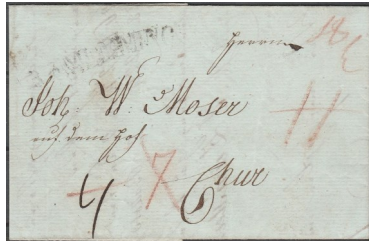 Herrn
Joh. W. Moser
auf dem Hof
Chur
4
7